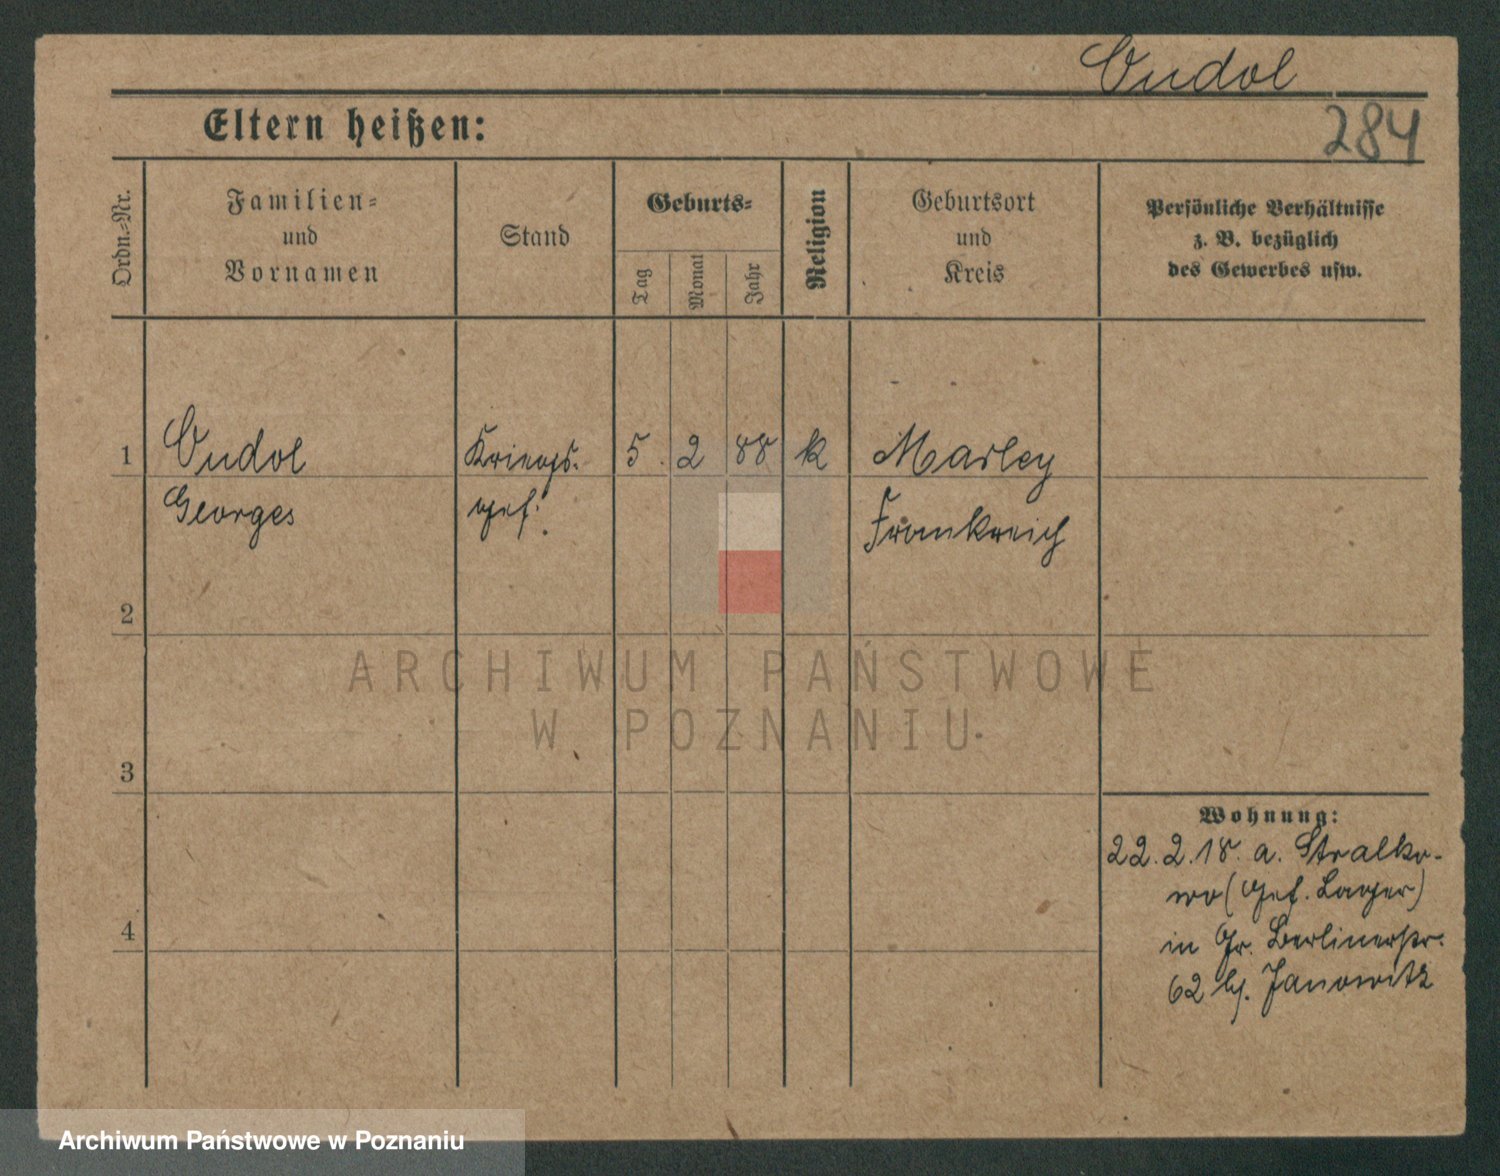 Oudol
284
Eltern heißen:
Ordn.-Nr.
Familien-
und
Vornamen
Stand
Geburts-
Tag
Monat
Jahr
Religion
Geburtsort
und
Kreis
Persönliche Verhältnisse
z. B. bezüglich
des Gewerbes usw.
1 Oudol Kriegs- 5. 2 88 k Marley
Georges gef. Frankreich
2
ARCHIWUM PAŃSTWOWE
W POZNANIU
3
Wohnung:
22.2.18. a. Stralko-
wo (Gef. Lager)
in Gr. Berlinerstr.
4
62 bj. Janowitz
Archiwum Państwowe w Poznaniu